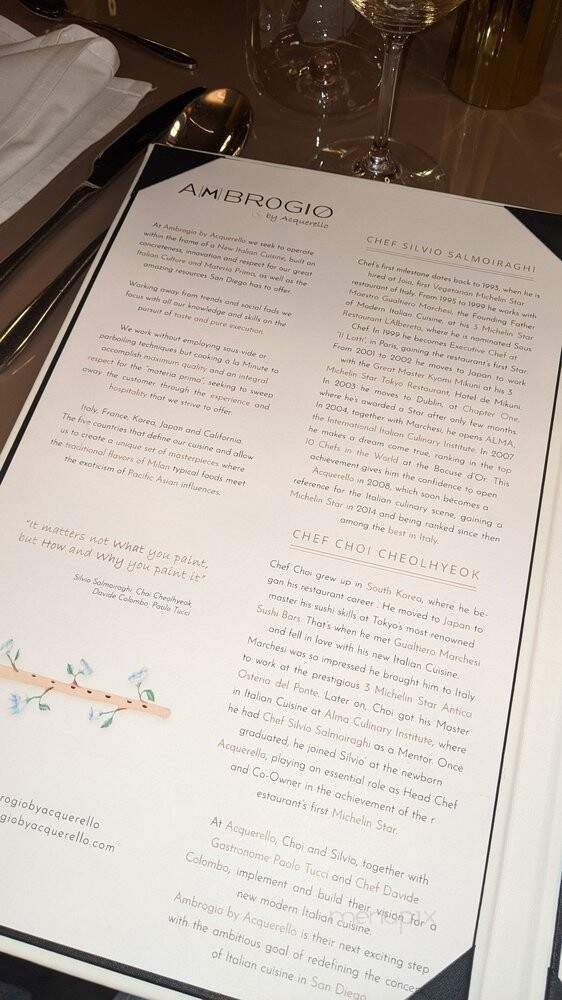 AMBROGIO
by Acquerello
At Ambrogio by Acquerello we seek to operate
within the frame of a New Italian Cuisine, built on
concreteness, innovation and respect for our great
Italian Culture and Materia Prima, as well as the
amazing resources San Diego has to offer.
Working away from trends and social fads we
focus with all our knowledge and skills on the
pursuit of taste and pure execution.
We work without employing sous-vide or
parboiling techniques but cooking a la Minute to
accomplish maximum quality and an integral
respect for the "materia prima", seeking to sweep
away the customer through the experience and
hospitality that we strive to offer.
Italy, France, Korea, Japan and California.
The five countries that define our cuisine and allow
us to create a unique set of masterpieces where
the traditional flavors of Milan typical foods meet
the exoticism of Pacific Asian influences.
"It matters not What you paint,
but How and Why you paint it"
Silvio Salmoiraghi, Choi Cheolhyeok
Davide Colombo, Paolo Tucci
rogiobyacquerello
giobyacquerello.com
CHEF SILVIO SALMOIRAGHI
Chef's first milestone dates back to 1993, when he is
hired at Joia, first Vegetarian Michelin Star
restaurant of Italy. From 1995 to 1999 he works with
Maestro Gualtiero Marchesi, the Founding Father
of Modern Italian Cuisine, at his 3 Michelin Star
Restaurant L'Albereta, where he is nominated Sous
Chef. In 1999 he becomes Executive Chef at
"Il Lotti", in Paris, gaining the restaurant's first Star.
From 2001 to 2002 he moves to Japan to work
with the Great Master Kyomi Mikuni at his 3
Michelin Star Tokyo Restaurant, Hotel de Mikuni.
In 2003 he moves to Dublin, at Chapter One,
where he's awarded a Star after only few months.
In 2004, together with Marchesi, he opens ALMA,
the International Italian Culinary Institute. In 2007
he makes a dream come true, ranking in the top
10 Chefs in the World at the Bocuse d'Or. This
achievement gives him the confidence to open
Acquerello in 2008, which soon becomes a
reference for the Italian culinary scene, gaining a
Michelin Star in 2014 and being ranked since then
among the best in Italy.
CHEF CHOI CHEOLHYEOK
Chef Choi grew up in South Korea, where he be-
gan his restaurant career. He moved to Japan to
master his sushi skills at Tokyo's most renowned
Sushi Bars. That's when he met Gualtiero Marchesi
and fell in love with his new Italian Cuisine.
Marchesi was so impressed he brought him to Italy
to work at the prestigious 3 Michelin Star Antica
Osteria del Ponte. Later on, Choi got his Master
in Italian Cuisine at Alma Culinary Institute, where
he had Chef Silvio Salmoiraghi as a Mentor. Once
graduated, he joined Silvio at the newborn
Acquerello, playing an essential role as Head Chef
and Co-Owner in the achievement of the r
estaurant's first Michelin Star.
At Acquerello, Choi and Silvio, together with
Gastronome Paolo Tucci and Chef Davide
Colombo, implement and build their vision for a
new modern Italian cuisine.
Ambrogio by Acquerello is their next exciting step
with the ambitious goal of redefining the concep
of Italian cuisine in San Diego
menupix